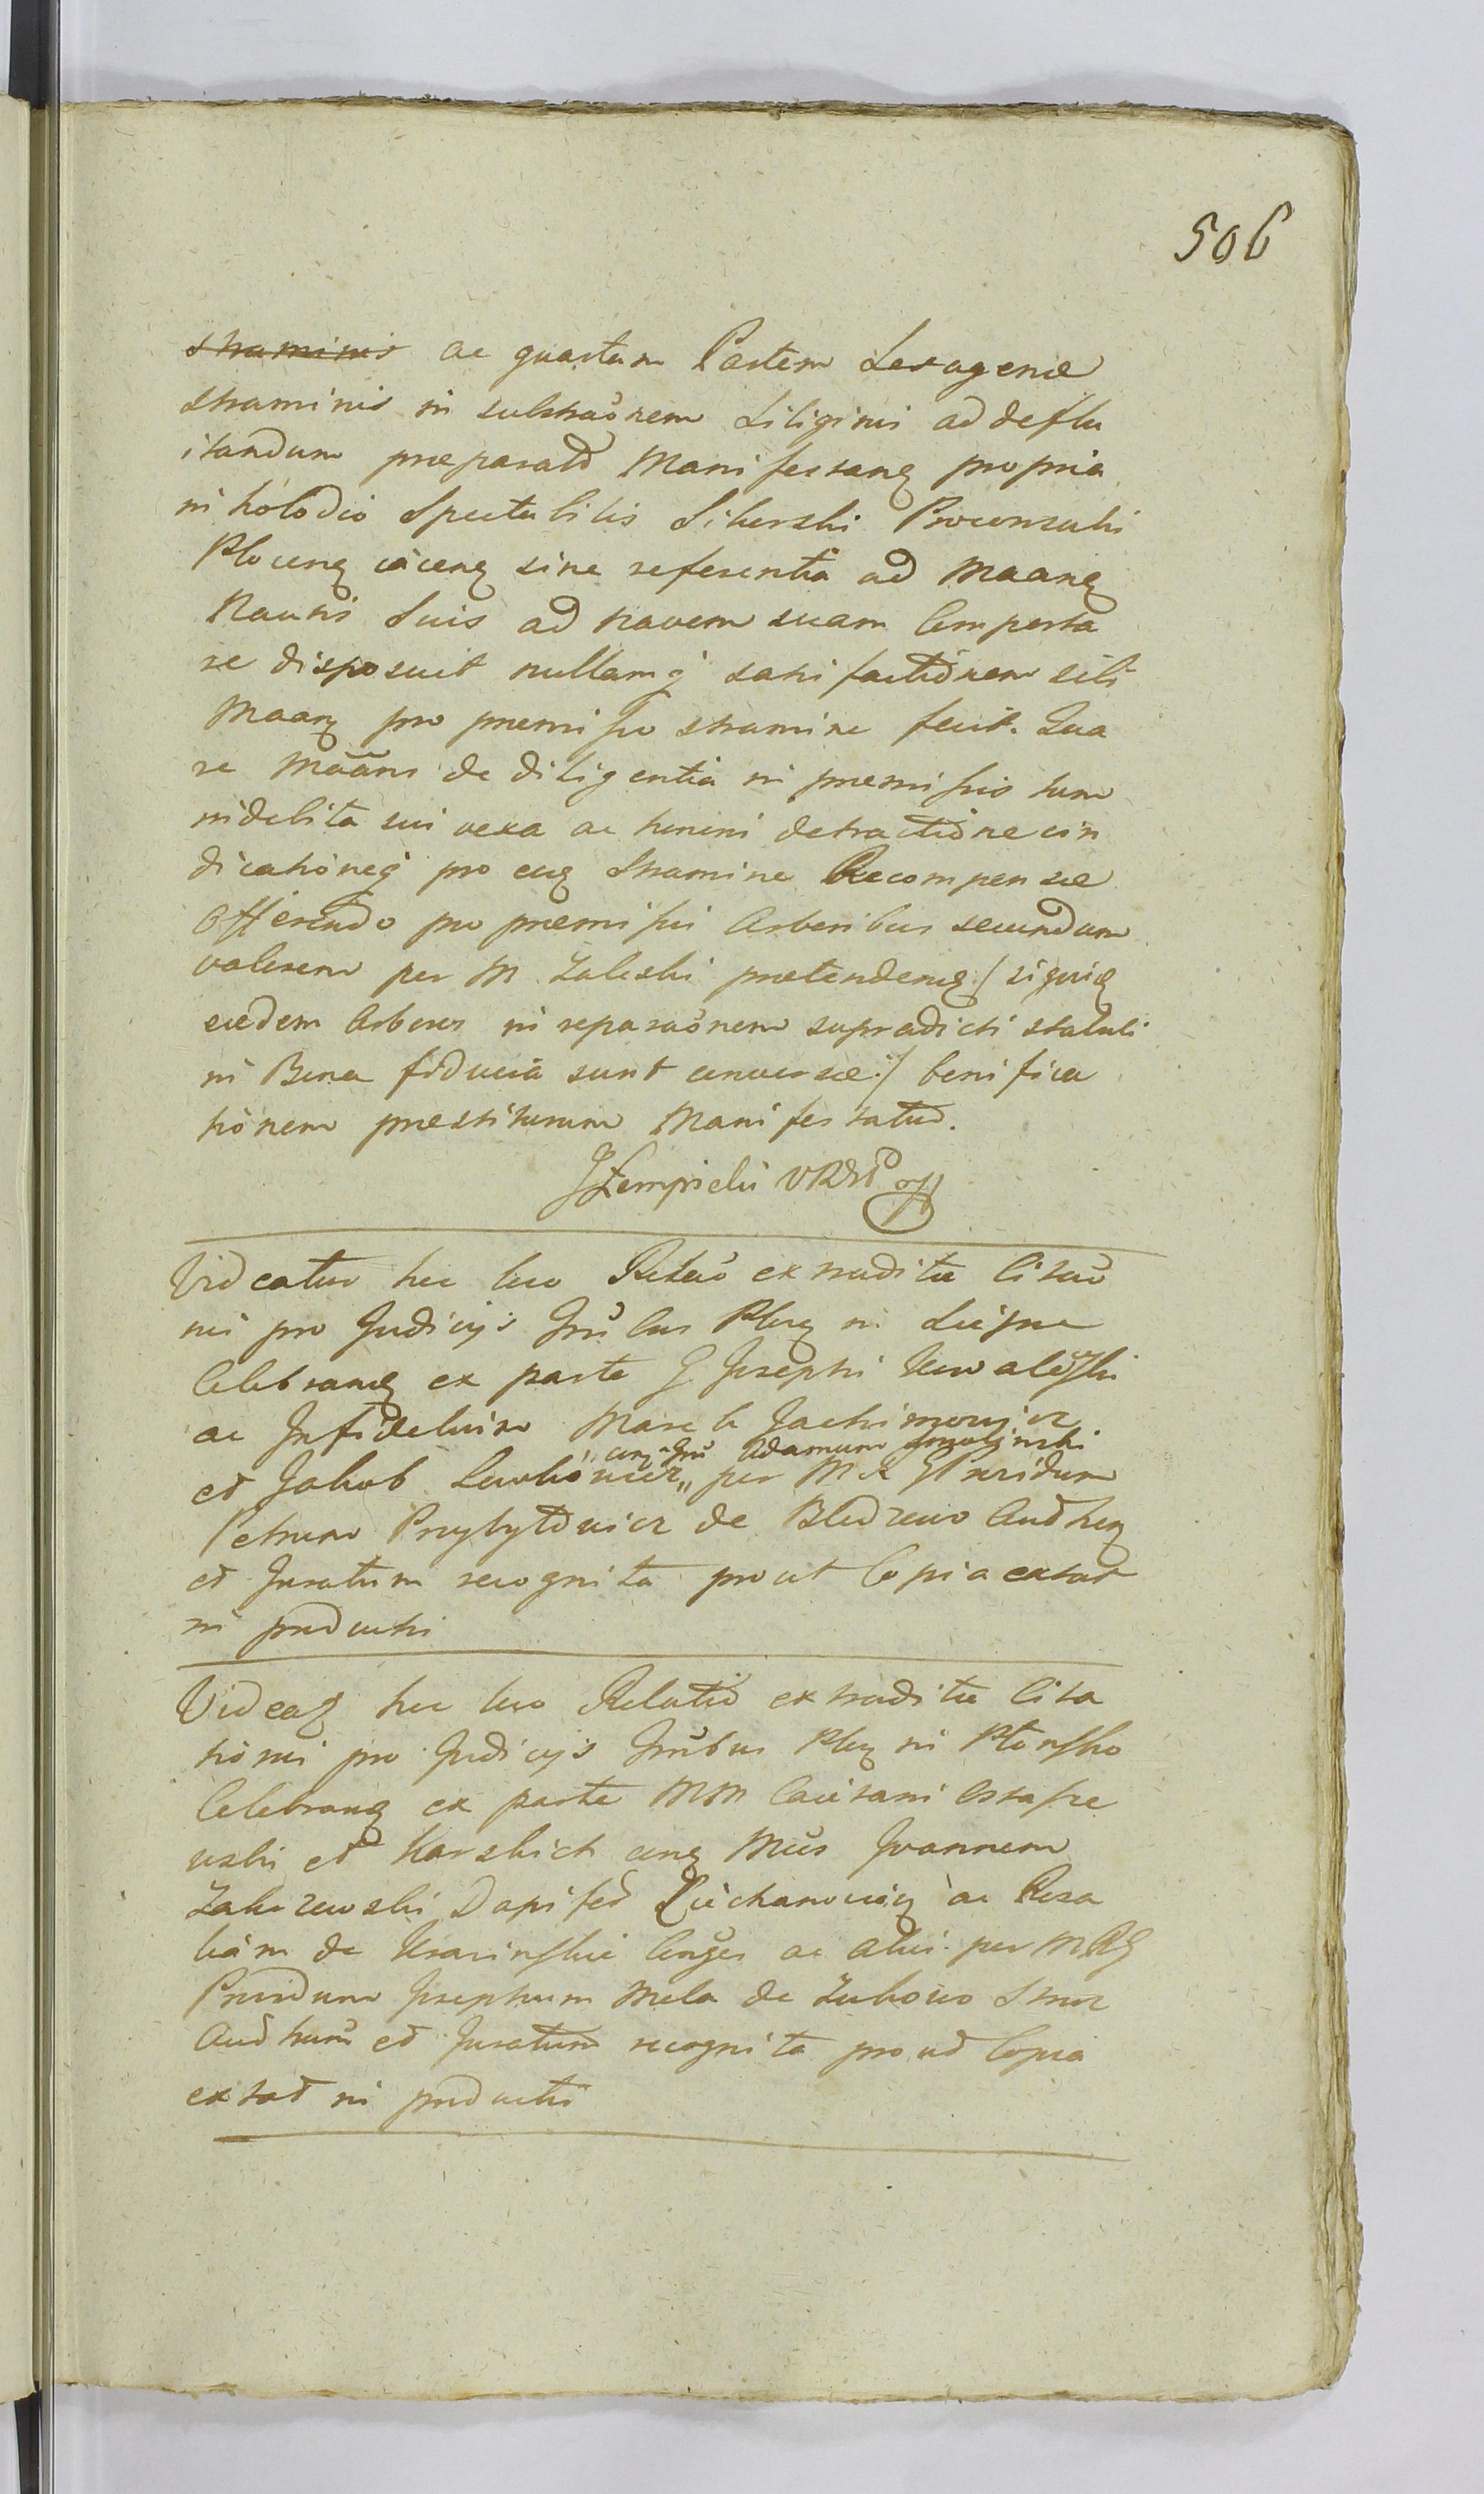 506
straminis ac quartam Partem Sexagenæ
straminis in substraõnem Siliginis ad deflu
itandum præparatã Manifestanq propria
in holodio Spectabilis Siherski Proconsulis
Plocenq iacenq sine referentia ad Maanq
Nautis Suis ad navem suam Comporta
re disposuit nullamq satisfactionem sibi
Maanq pro præmisso stramine fecit. Qua
re Maãns de diligentia in præmissis tum
indebita sui vexa ac hominis detractione vin
dicationeq pro euq Stramine Recompensæ
Offerendo pro præmissis Arboribus secundum
valorem per M Zaleski prætendenq /: siquiq
eædem Arbores in reparaõnem supradicti stabuli
in Bona fiducia sunt conversæ :/ bonifica
tionem præstiturum Manifestatur.
JŁempicki VRGP mpp
Videatur hic loco Relaõ extraditæ Citaõ
nis pro Judicijs Grũbus Plocq in Sierpce
Celebranq ex parte G Josephi Kowalewski
ac Infidelium Marek Joachimowicz
conq Grũ Adamum Smolinski
et Jakob Lewkowicz per M R G Providum
Petrum Przybyłowicz de Bledzewo Authenq
et Juratum recognita prout Copia extat
in productis
Videaq hic loco Relatio extraditæ Cita
tionis pro Judicijs Grũbus Plocq in Płońsko
Celebranq ex parte MM Caietani Ostasze
wski et Karskich conq Mũs Joannem
Zakrzewski Dapiferũ Ciechanovienq ac Rosa
liam de Krasinskie Conjges ac alios per MRG
Providum Josephum Mela de Zukowo Struz
Authenũ et Juratum recognita prout Copia
extat in productis